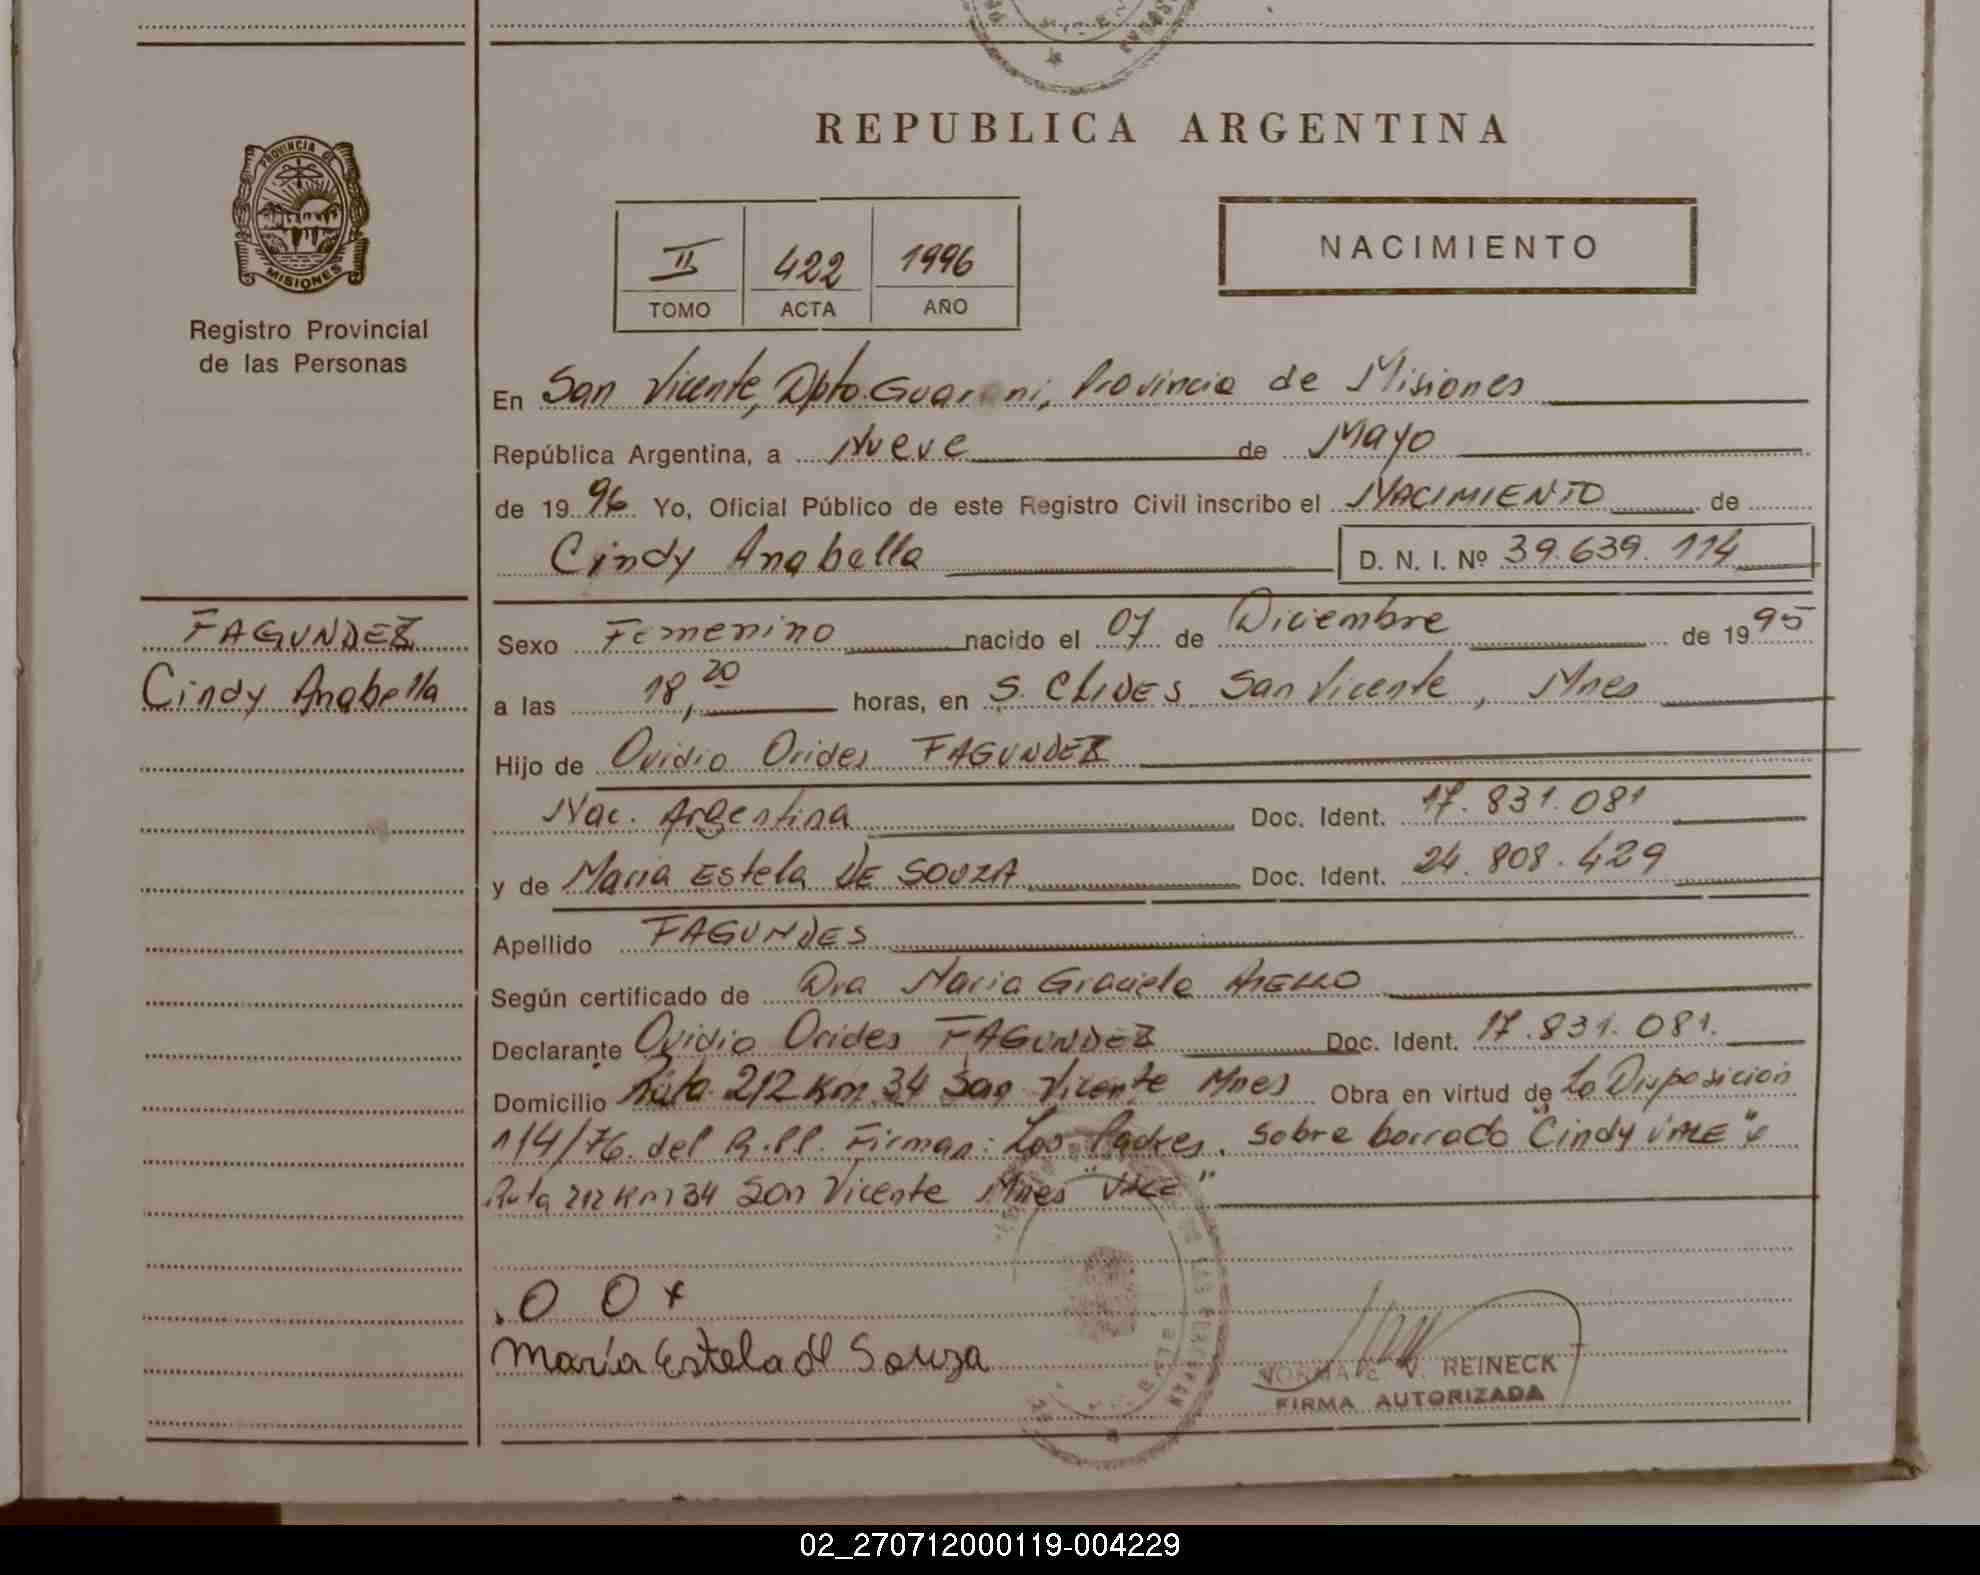 REPUBLICA ARGENTINA
PROVINCIA DE
MISIONES
Registro Provincial
de las Personas
II 422 1996
TOMO ACTA AÑO
NACIMIENTO
En San Vicente, Dpto. Guarani, Provincia de Misiones
República Argentina, a Nueve de Mayo
de 1996 Yo, Oficial Público de este Registro Civil inscribo el NACIMIENTO de
Cindy Anabella D. N. I. Nº 39.639.114
FAGUNDEZ
Cindy Anabella
Sexo Femenino nacido el 07 de Diciembre de 1995
a las 18,20 horas, en S. CLIDES San Vicente, Mnes
Hijo de Ovidio Orides FAGUNDEZ
Nac. Argentina Doc. Ident. 17.831.081
y de Maria Estela DE SOUZA Doc. Ident. 24.808.429
Apellido FAGUNDES
Según certificado de Dra Maria Graciela
Declarante Ovidio Orides FAGUNDEZ Doc. Ident. 17.831.081.
Domicilio Ruta 212 Km 34 San Vicente Mnes Obra en virtud de La Disposicion
114/76 del R.P.P. Firman: Los Padres. Sobre borrado "Cindy VALE" y
Ruta 212 Km 34 San Vicente Mnes "VALE"
.O O x
María Estela de Souza
NORMA C. V. REINECK
FIRMA AUTORIZADA
02_270712000119-004229